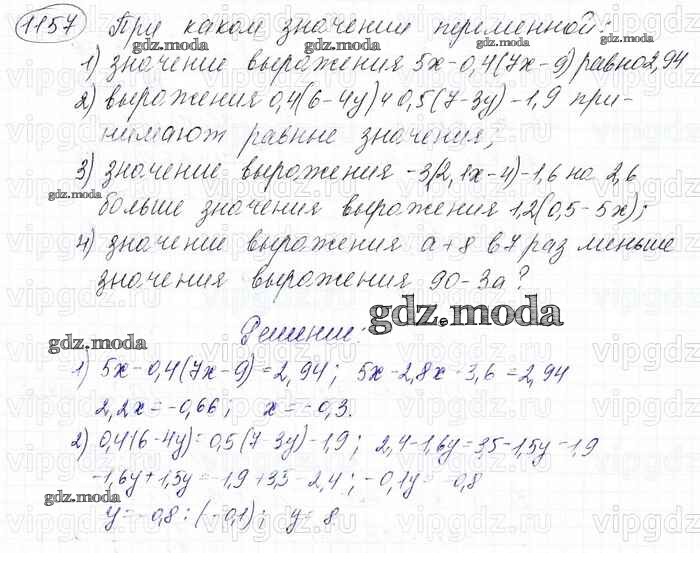 1157 При каком значении переменной:
gdz.moda gdz.moda
1) значение выражения 5x-0,4(7x-9) равно 2,94
2) выражения 0,4(6-4y) и 0,5(7-3y)-1,9 при-
нимают равные значения,
gdz.moda
3) значение выражения -3(2,1x-4)-1,6 на 2,6
gdz.moda
больше значения выражения 1,2(0,5-5x);
4) значение выражения a+8 в 7 раз меньше
значения выражения 90-3a?
gdz.moda
Решение:
gdz.moda
1) 5x-0,4(7x-9)=2,94; 5x-2,8x+3,6=2,94
2,2x=-0,66; x=-0,3.
gdz.moda
2) 0,4(6-4y)=0,5(7-3y)-1,9; 2,4-1,6y=3,5-1,5y-1,9
-1,6y+1,5y=-1,9+3,5-2,4; -0,1y=-0,8
gdz.moda
y=-0,8:(-0,1); y=8.